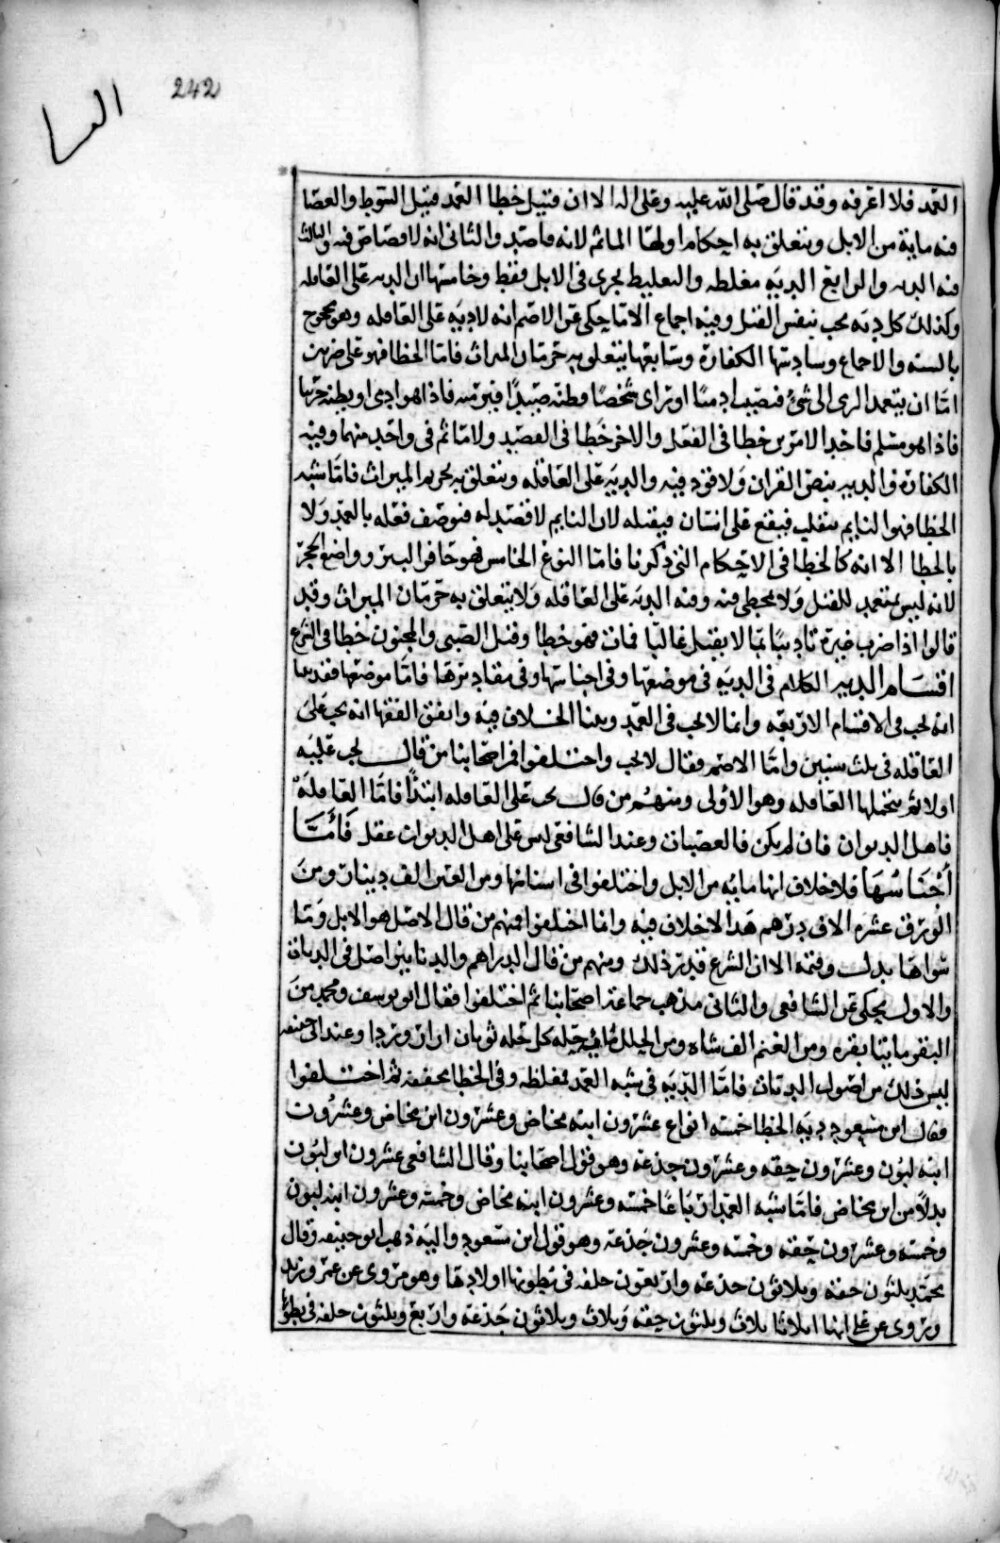 242
العمد فلا اعرفه وقد قال صلى الله عليه وعلى اله الا ان قتيل خطا العمد قتيل السوط والعصا
فيه ماية من الابل ويتعلق به احكام اولها الماثم لانه قاصد والثاني انه لا قصاص فيه والثالث
فيه الديه والرابع الدية مغلظه والتغليظ يجري في الابل فقط وخامسها ان الديه على العاقله
وكذلك كل دية يجب بنفس القتل وفيه اجماع الا ما يحكى عن الاصم انه لا دية على العاقله وهو محجوج
بالسنه والاجماع وسادسها الكفارة وسابعها يتعلق به حرمان الميراث فاما الخطا فهو على ضربين
اما ان يتعمد الرمي الى شي فيصيب ادميا او يرى شخصا وظنه صيدا فيرميه فاذا هو ادمي او يظنه حربيا
فاذا هو مسلم فاحد الامرين خطا في الفعل والاخر خطا في القصد ولا ماثم في واحد منهما وفيه
الكفارة والديه بنص القران ولا قود فيه والدية على العاقله ويتعلق به تحريم الميراث فاما شبه
الخطا فهو النايم ينقلب فيقع على انسان فيقتله لان النايم لا قصد له فيوصف فعله بالعمد ولا
بالخطا الا انه كالخطا في الاحكام التي ذكرنا فاما النوع الخامس فهو حافر البير وواضع الحجر
لانه ليس بمتعمد للقتل ولا مخطي فيه وفيه الديه على العاقله ولا يتعلق به حرمان الميراث وقد
قالوا اذا ضرب غيره تاديبا بما لا يقتل غالبا فمات فهو خطا وقتل الصبي والمجنون خطا في الشرع
اقسام الديه الكلام في الدية في موضعها وفي اجناسها وفي مقاديرها فاما موضعها فقد بينا
انه يجب في الاقسام الاربعه وانما لا يجب في العمد وبينا الخلاف فيه واتفق الفقها انه يجب على
العاقله في ثلث سنين واما الاصم فقال لا يجب واختلفوا فمن اصحابنا من قال يجب عليه
اولا ثم يتحملها العاقله وهو الأولى ومنهم من قال يجب على العاقله ابتدا فاما العاقلة
فاهل الديوان فان لم يكن فالعصبات وعند الشافعي ليس على اهل الديوان عقل فأما
أجناسها فلا خلاف انها مايه من الابل واختلفوا في اسنانها ومن العين الف دينار ومن
الورق عشره الاف درهم هذا لا خلاف فيه وانما اختلفوا فمنهم من قال الاصل هو الابل وما
سواها بدل وقيمه الا ان الشرع قدر ذلك ومنهم من قال الدراهم والدنانير اصل في الديات
والاول يحكى عن الشافعي والثاني مذهب جماعة اصحابنا ثم اختلفوا فقال ابو يوسف ومحمد من
البقر مايتا بقره ومن الغنم الف شاه ومن الحلل مايتي حله كل حله ثوبان ازار وردا وعند ابي حنيفه
ليس ذلك من اصول الديات فاما الدية في شبه العمد مغلظه وفي الخطا مخففه ثم اختلفوا
فقال ابن مسعود دية الخطا خمسه انواع عشرون ابنه مخاض وعشرون ابن مخاض وعشرون
ابنه لبون وعشرون حقه وعشرون جذعه وهو قول اصحابنا وقال الشافعي عشرون ابن لبون
بدلا من ابن مخاض فاما شبه العمد ارباعا خمسه وعشرون ابنه مخاض وخمسة وعشرون ابنه لبون
وخمسه وعشرون حقه وخمسه وعشرون جذعه وهو قول ابن مسعود واليه ذهب ابو حنيفه وقال
محمد ثلثون حقه وثلاثون جذعه واربعون خلفه في بطونها اولادها وهو مروي عن عمر وزيد
وروى عن علي انها اثلاثا ثلاث وثلثون حقه وثلاث وثلاثون جذعه واربع وثلثون خلفه في بطو